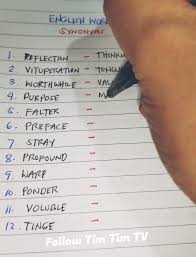 ENGLISH WOR
SYNONYMS
1. REFLECTION – THINKI
2. VITUPERATION – TONGUE
3. WORTHWHILE – VALU
4. PURPOSE – M
5. FALTER –
6. PREFACE –
7. STRAY –
8. PROFOUND –
9. WARP –
10. PONDER –
11. VOLUBLE –
12. TINGE –
Follow Tim Tim TV